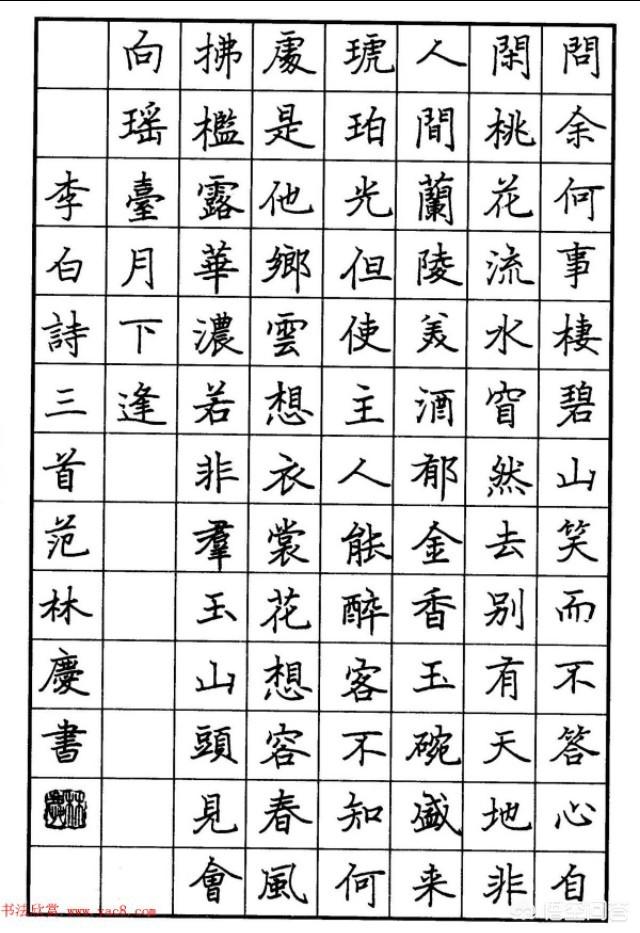 問余何事棲碧山笑而不答心自
閑桃花流水窅然去別有天地非
人間蘭陵美酒郁金香玉碗盛来
琥珀光但使主人能醉客不知何
處是他鄉雲想衣裳花想容春風
拂檻露華濃若非羣玉山頭見會
向瑶臺月下逢
李白詩三首范林慶書
书法欣赏 www.yac8.com
悟空问答